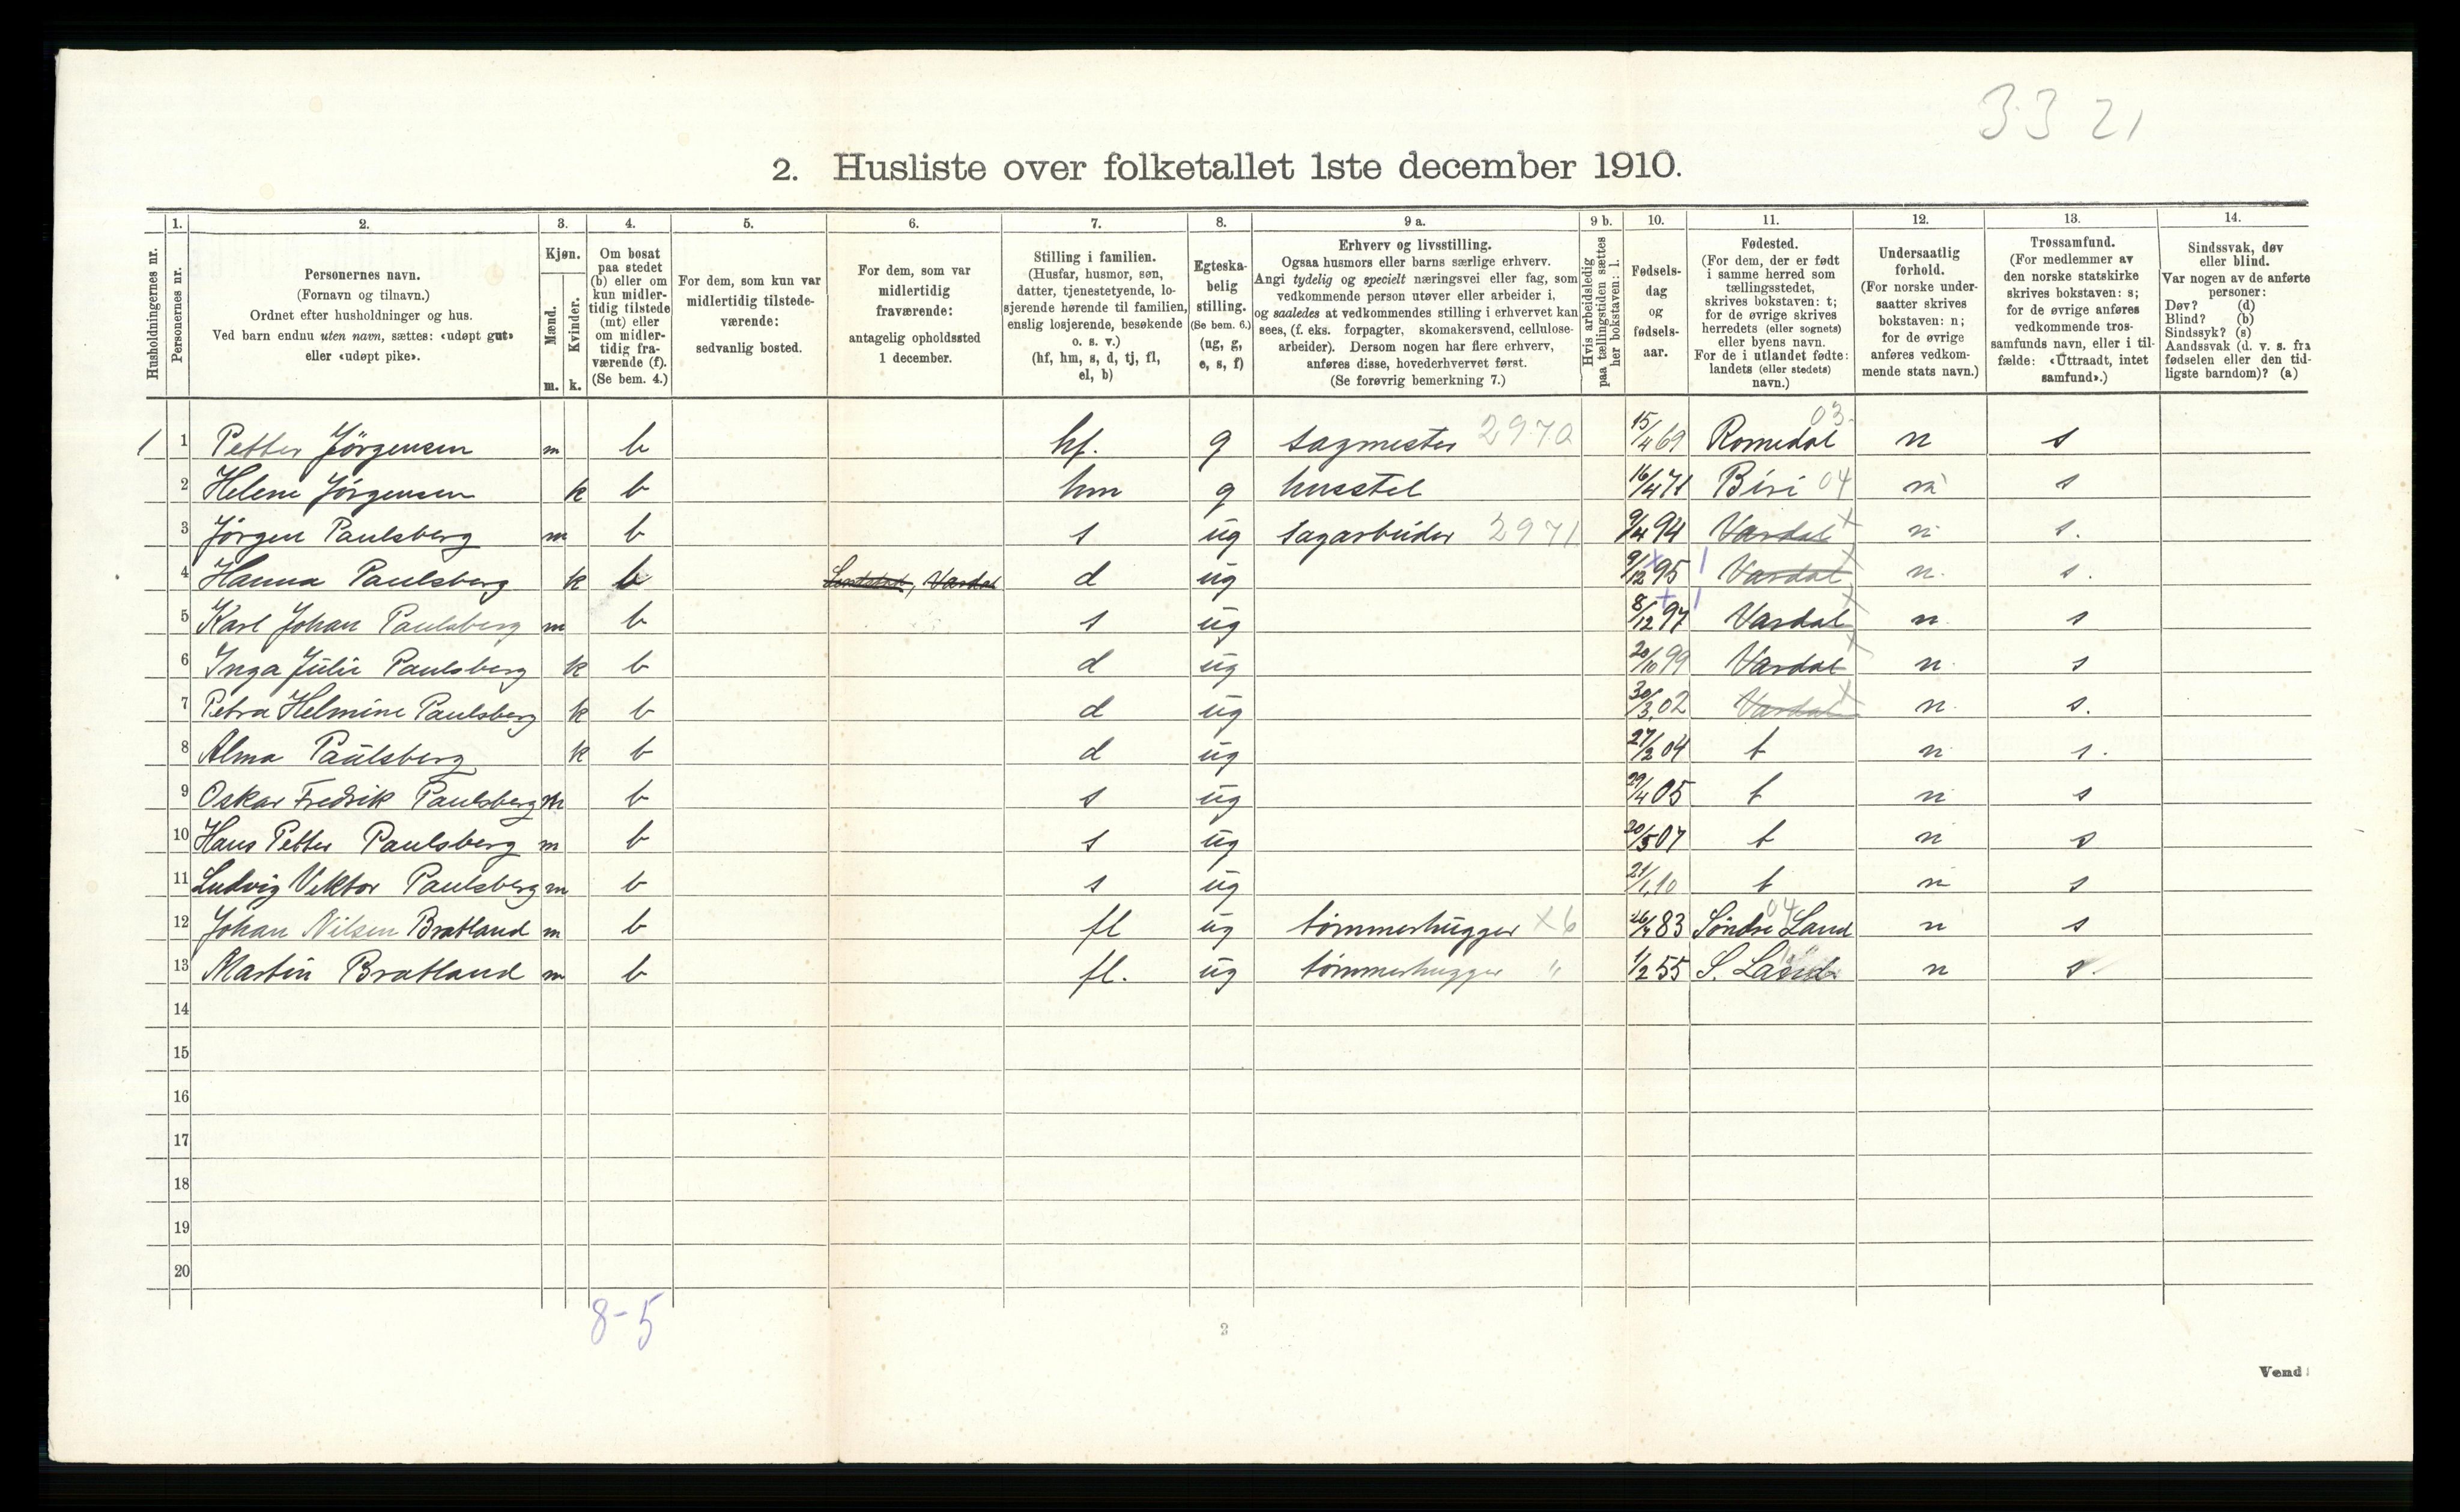 33 21
2. Husliste over folketallet 1ste december 1910.
Husholdningernes nr.
1. Personernes nr.
2. Personernes navn. (Fornavn og tilnavn.) Ordnet efter husholdninger og hus. Ved barn endnu uten navn, sættes: «udøpt gut» eller «udøpt pike».
3. Kjøn. Mænd. m. Kvinder. k.
4. Om bosat paa stedet (b) eller om kun midlertidig tilstede (mt) eller om midlertidig fraværende (f). (Se bem. 4.)
5. For dem, som kun var midlertidig tilstedeværende: sedvanlig bosted.
6. For dem, som var midlertidig fraværende: antagelig opholdssted 1 december.
7. Stilling i familien. (Husfar, husmor, søn, datter, tjenestetyende, losjerende hørende til familien, enslig losjerende, besøkende o. s. v.) (hf, hm, s, d, tj, fl, el, b)
8. Egteskabelig stilling. (Se bem. 6.) (ug, g, e, s, f)
9 a. Erhverv og livsstilling. Ogsaa husmors eller barns særlige erhverv. Angi tydelig og specielt næringsvei eller fag, som vedkommende person utøver eller arbeider i, og saaledes at vedkommendes stilling i erhvervet kan sees, (f. eks. forpagter, skomakersvend, cellulosearbeider). Dersom nogen har flere erhverv, anføres disse, hovederhvervet først. (Se forøvrig bemerkning 7.)
9 b. Hvis arbeidsledig paa tællingstiden sættes her bokstaven: l.
10. Fødselsdag og fødselsaar.
11. Fødested. (For dem, der er født i samme herred som tællingsstedet, skrives bokstaven: t; for de øvrige skrives herredets (eller sognets) eller byens navn. For de i utlandet fødte: landets (eller stedets) navn.)
12. Undersaatlig forhold. (For norske undersaatter skrives bokstaven: n; for de øvrige anføres vedkommende stats navn.)
13. Trossamfund. (For medlemmer av den norske statskirke skrives bokstaven: s; for de øvrige anføres vedkommende trossamfunds navn, eller i tilfælde: «Uttraadt, intet samfund».)
14. Sindssvak, døv eller blind. Var nogen av de anførte personer: Døv? (d) Blind? (b) Sindssyk? (s) Aandssvak (d. v. s. fra fødselen eller den tidligste barndom)? (a)
1 1 Petter Jörgensen m b hf. g sagmester 2970 15/4 69 Romedal 03 n s
2 Helene Jörgensen k b hm g husstel 16/4 71 Biri 04 n s
3 Jörgen Paulsberg m b s ug sagarbeider 2971 9/4 94 Vardal n s.
4 Hanna Paulsberg k b Vardal d ug 9/12 95 Vardal n s.
5 Karl Johan Paulsberg m b s ug 8/12 97 Vardal n s
6 Inga Julie Paulsberg k b d ug 20/10 99 Vardal n s
7 Petra Helmine Paulsberg k b d ug 30/3 02 Vardal n s.
8 Alma Paulsberg k b d ug 27/2 04 t n s.
9 Oskar Fredrik Paulsberg m b s ug 29/4 05 t n s
10 Hans Petter Paulsberg m b s ug 20/5 07 t n s
11 Ludvig Viktor Paulsberg m b s ug 21/1 10 t n s
12 Johan Nilsen Bratland m b fl ug tömmerhugger X6 83 Söndre Land 04 n s
13 Martin Bratland m b fl. ug tömmerhugger " 1/2 55 S. Land n s.
14
15
16
17
18
19
20
8-5
3
Vend